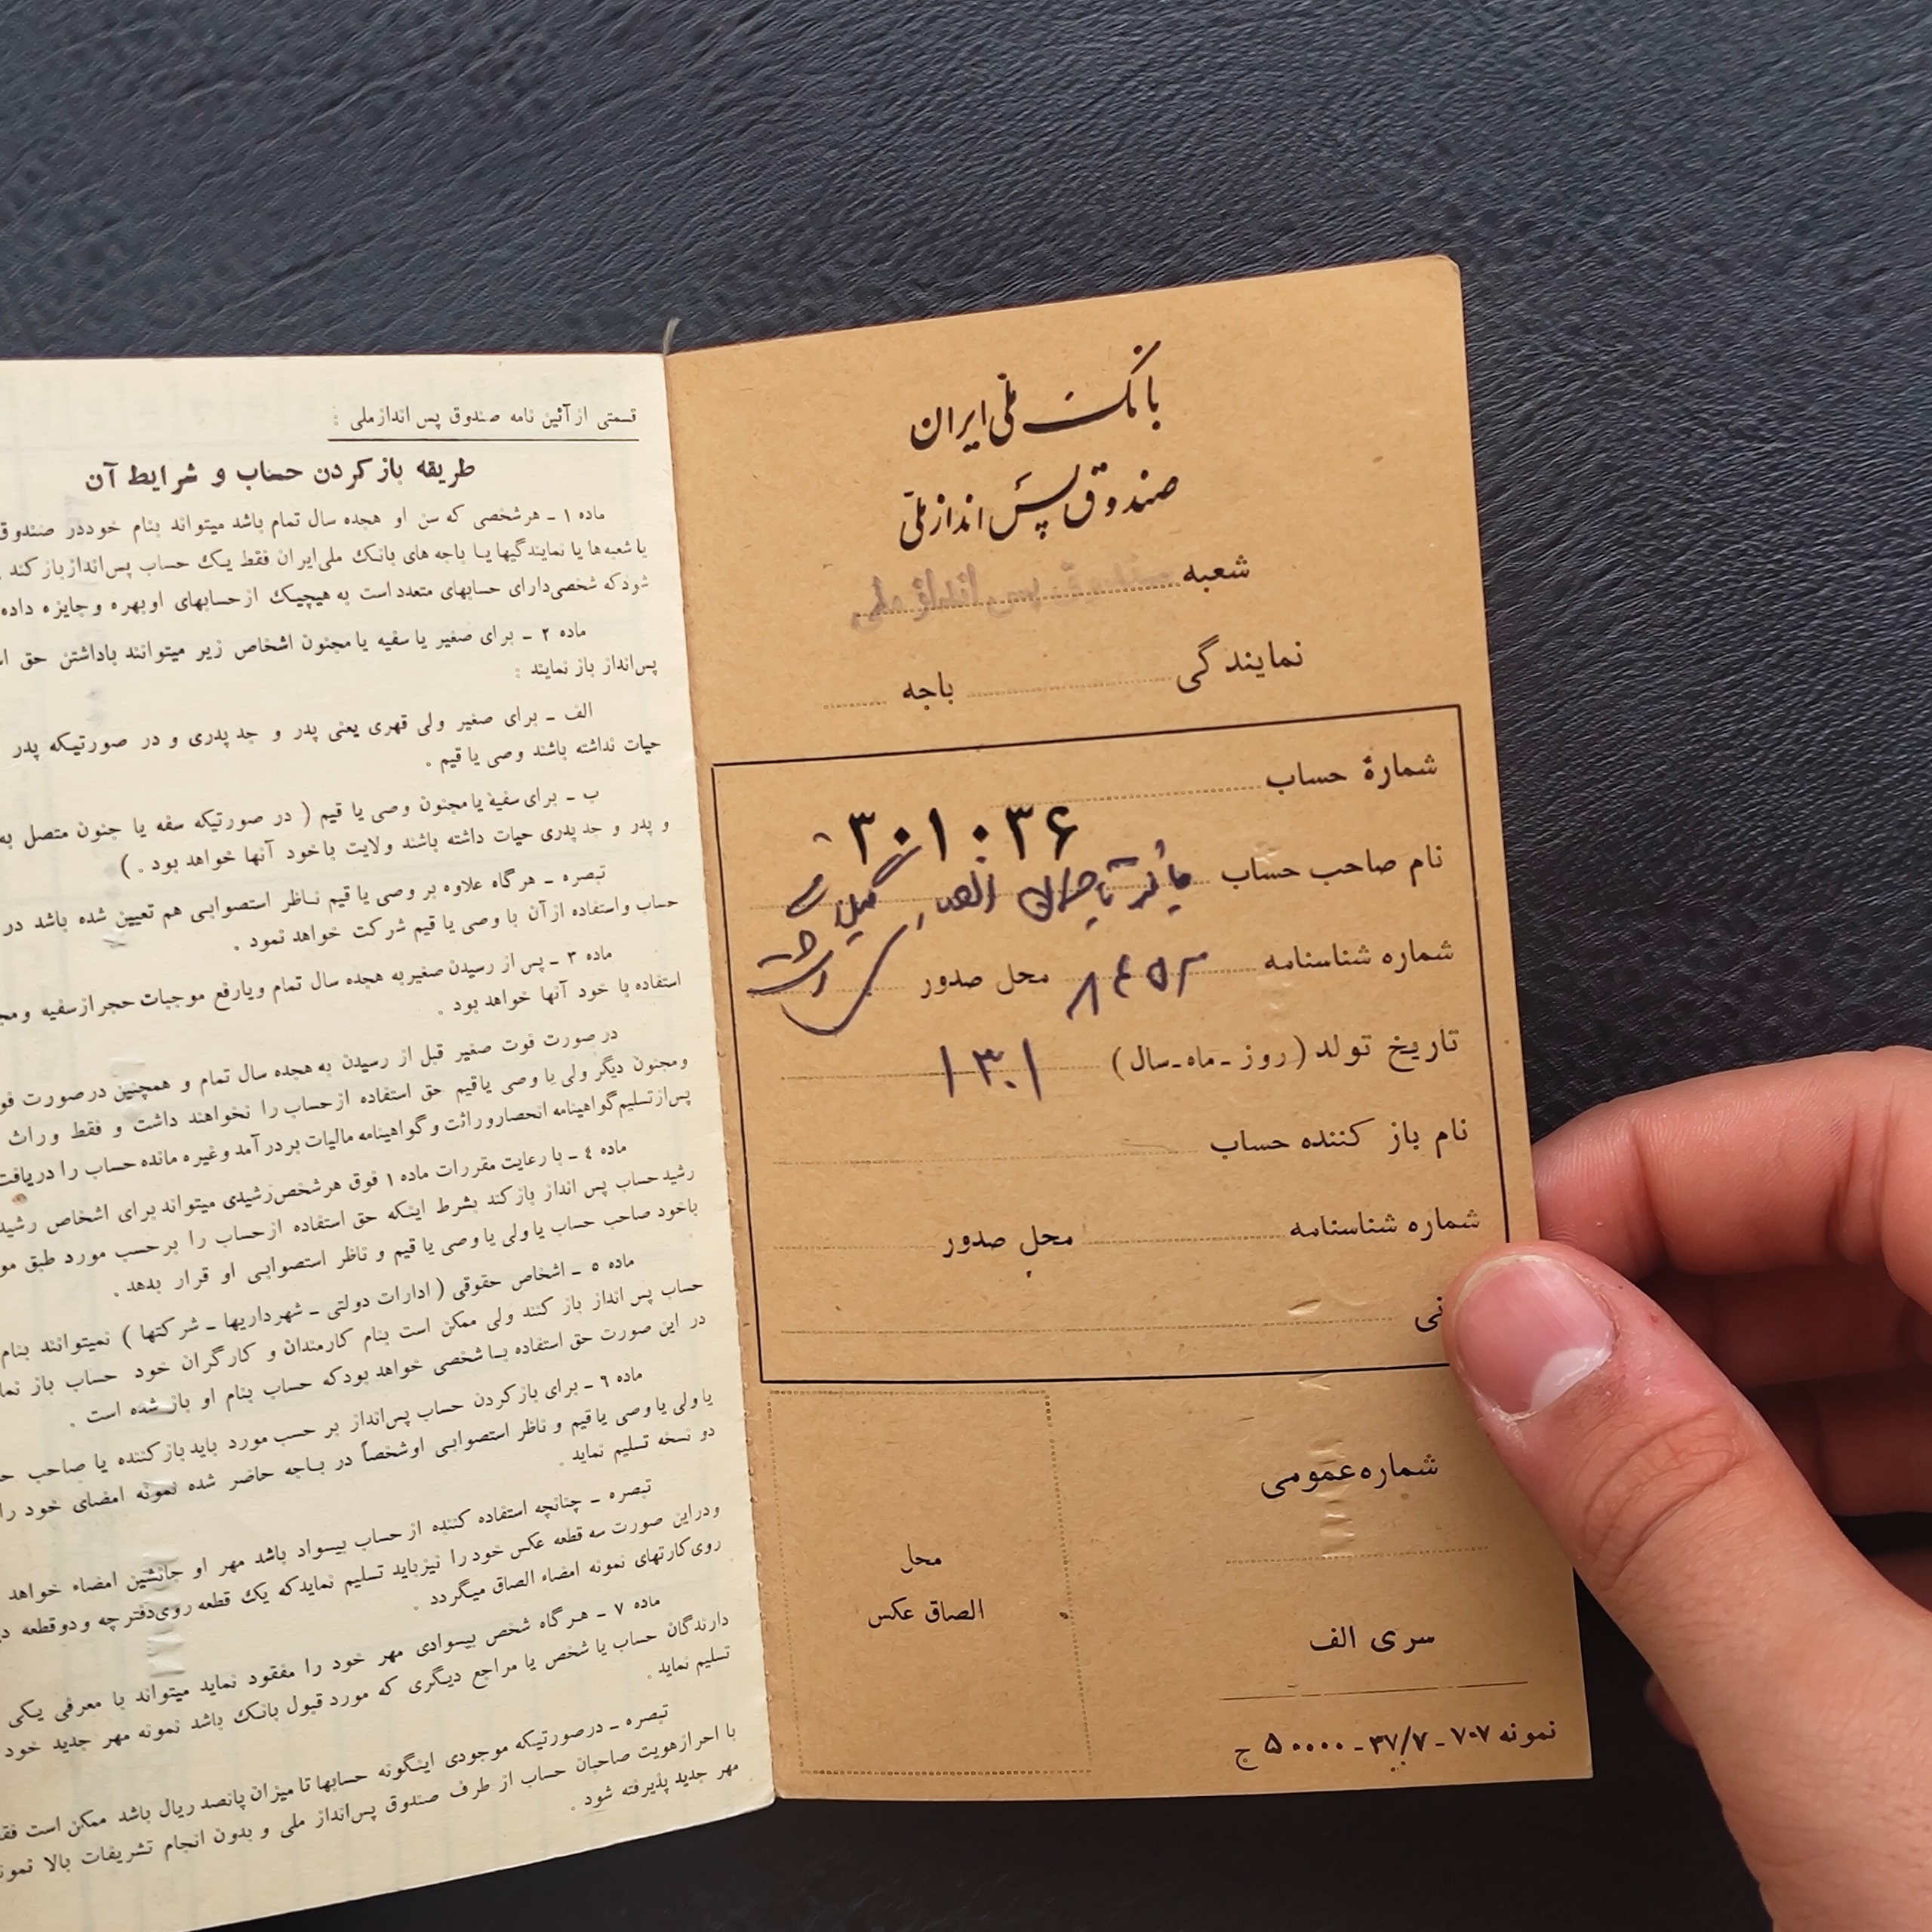 بانک ملی ایران
صندوق پس انداز ملی
شعبه صندوق پس انداز ملی
نمایندگی باجه
شمارهٔ حساب
۳۰۱۰۳۶
نام صاحب حساب
شماره شناسنامه محل صدور
تاریخ تولد (روز ـ ماه ـ سال) ۱۳۰۱
نام باز کننده حساب
شماره شناسنامه محل صدور
نی
شماره عمومی
محل
الصاق عکس
سری الف
نمونه ۷۰۷ ـ ۳۷/۷ ـ ۵۰۰۰۰ ج
قسمتی از آئین نامه صندوق پس انداز ملی :
طریقه باز کردن حساب و شرایط آن
ماده ۱ ـ هر شخصی که سن او هجده سال تمام باشد میتواند بنام خود در صندوق
یا شعبه ها یا نمایندگیها یا باجه های بانک ملی ایران فقط یک حساب پس انداز باز کند
شود که شخصی دارای حسابهای متعدد است به هیچیک از حسابهای او بهره و جایزه داده
ماده ۲ ـ برای صغیر یا سفیه یا مجنون اشخاص زیر میتوانند با داشتن حق
پس انداز باز نمایند :
الف ـ برای صغیر ولی قهری یعنی پدر و جد پدری و در صورتیکه پدر
حیات نداشته باشند وصی یا قیم .
ب ـ برای سفیه یا مجنون وصی یا قیم ( در صورتیکه سفه یا جنون متصل به
و پدر و جد پدری حیات داشته باشند ولایت با خود آنها خواهد بود . )
تبصره ـ هر گاه علاوه بر وصی یا قیم ناظر استصوابی هم تعیین شده باشد در
حساب و استفاده از آن با وصی یا قیم شرکت خواهد نمود .
ماده ۳ ـ پس از رسیدن صغیر به هجده سال تمام و یا رفع موجبات حجر از سفیه و
استفاده با خود آنها خواهد بود .
در صورت فوت صغیر قبل از رسیدن به هجده سال تمام و همچنین در صورت
و مجنون دیگر ولی یا وصی یا قیم حق استفاده از حساب را نخواهند داشت و فقط وراث
پس از تسلیم گواهینامه انحصار وراثت و گواهینامه مالیات بر درآمد و غیره مانده حساب را دریافت
ماده ٤ ـ با رعایت مقررات ماده ۱ فوق هر شخص رشیدی میتواند برای اشخاص رشید
رشید حساب پس انداز باز کند بشرط اینکه حق استفاده از حساب را بر حسب مورد طبق
با خود صاحب حساب یا ولی یا وصی یا قیم و ناظر استصوابی او قرار بدهد .
ماده ۵ ـ اشخاص حقوقی ( ادارات دولتی ـ شهرداریها ـ شرکتها ) نمیتوانند بنام
حساب پس انداز باز کنند ولی ممکن است بنام کارمندان و کارگران خود حساب باز
در این صورت حق استفاده با شخصی خواهد بود که حساب بنام او باز شده است .
ماده ٦ ـ برای باز کردن حساب پس انداز بر حسب مورد باید باز کننده یا صاحب
یا ولی یا وصی یا قیم و ناظر استصوابی او شخصاً در باجه حاضر شده نمونه امضای خود را
دو نسخه تسلیم نماید .
تبصره ـ چنانچه استفاده کننده از حساب بیسواد باشد مهر او جانشین امضاء خواهد
و در این صورت سه قطعه عکس خود را نیز باید تسلیم نماید که یک قطعه روی دفترچه و دو قطعه
روی کارتهای نمونه امضاء الصاق میگردد .
ماده ۷ ـ هر گاه شخص بیسوادی مهر خود را مفقود نماید میتواند با معرفی یکی
دارندگان حساب یا شخص یا مراجع دیگری که مورد قبول بانک باشد نمونه مهر جدید خود
تسلیم نماید .
تبصره ـ در صورتیکه موجودی اینگونه حسابها تا میزان پانصد ریال باشد ممکن است
با احراز هویت صاحبان حساب از طرف صندوق پس انداز ملی و بدون انجام تشریفات بالا
مهر جدید پذیرفته شود .